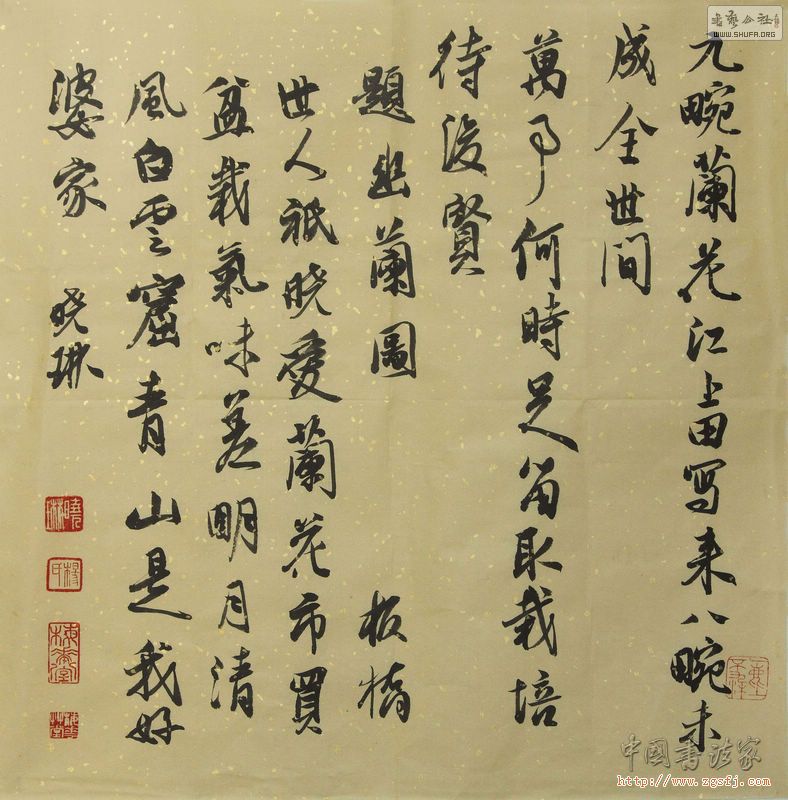 九畹蘭花江上田寫来八畹未
成全世间
萬事何時足留取栽培
待後賢
題幽蘭圖　板橋
世人祇晓愛蘭花市買
盆栽氣味差明月清
風白雲窟青山是我好
婆家　晓琳
書藝公社
WWW.SHUFA.ORG
中國書法家
http://www.zgsfj.com